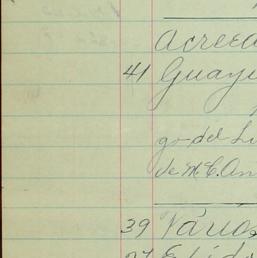 Acreed
41 Guay
go del Lu
de M. C. An
39 Varios